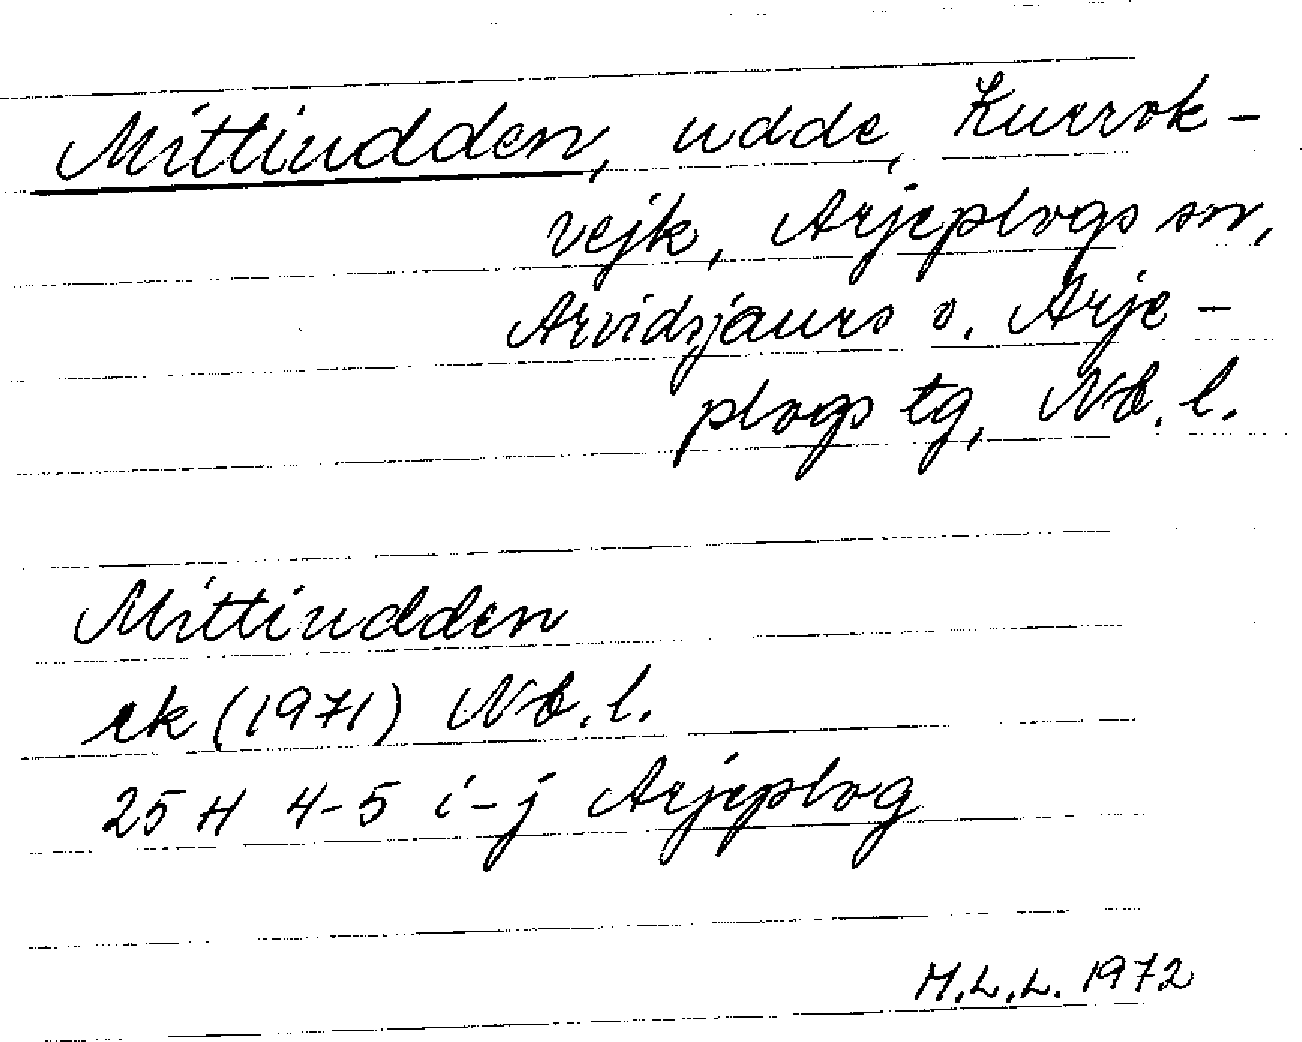 Mittiudden, udde, Kurrok-
vejk, Arjeplogs sn,
Arvidsjaurs o. Arje-
plogs tg, Nb. l.
Mittiudden
ek (1971) Nb. l.
25 H 4-5 i-j Arjeplog
M.L.L. 1972